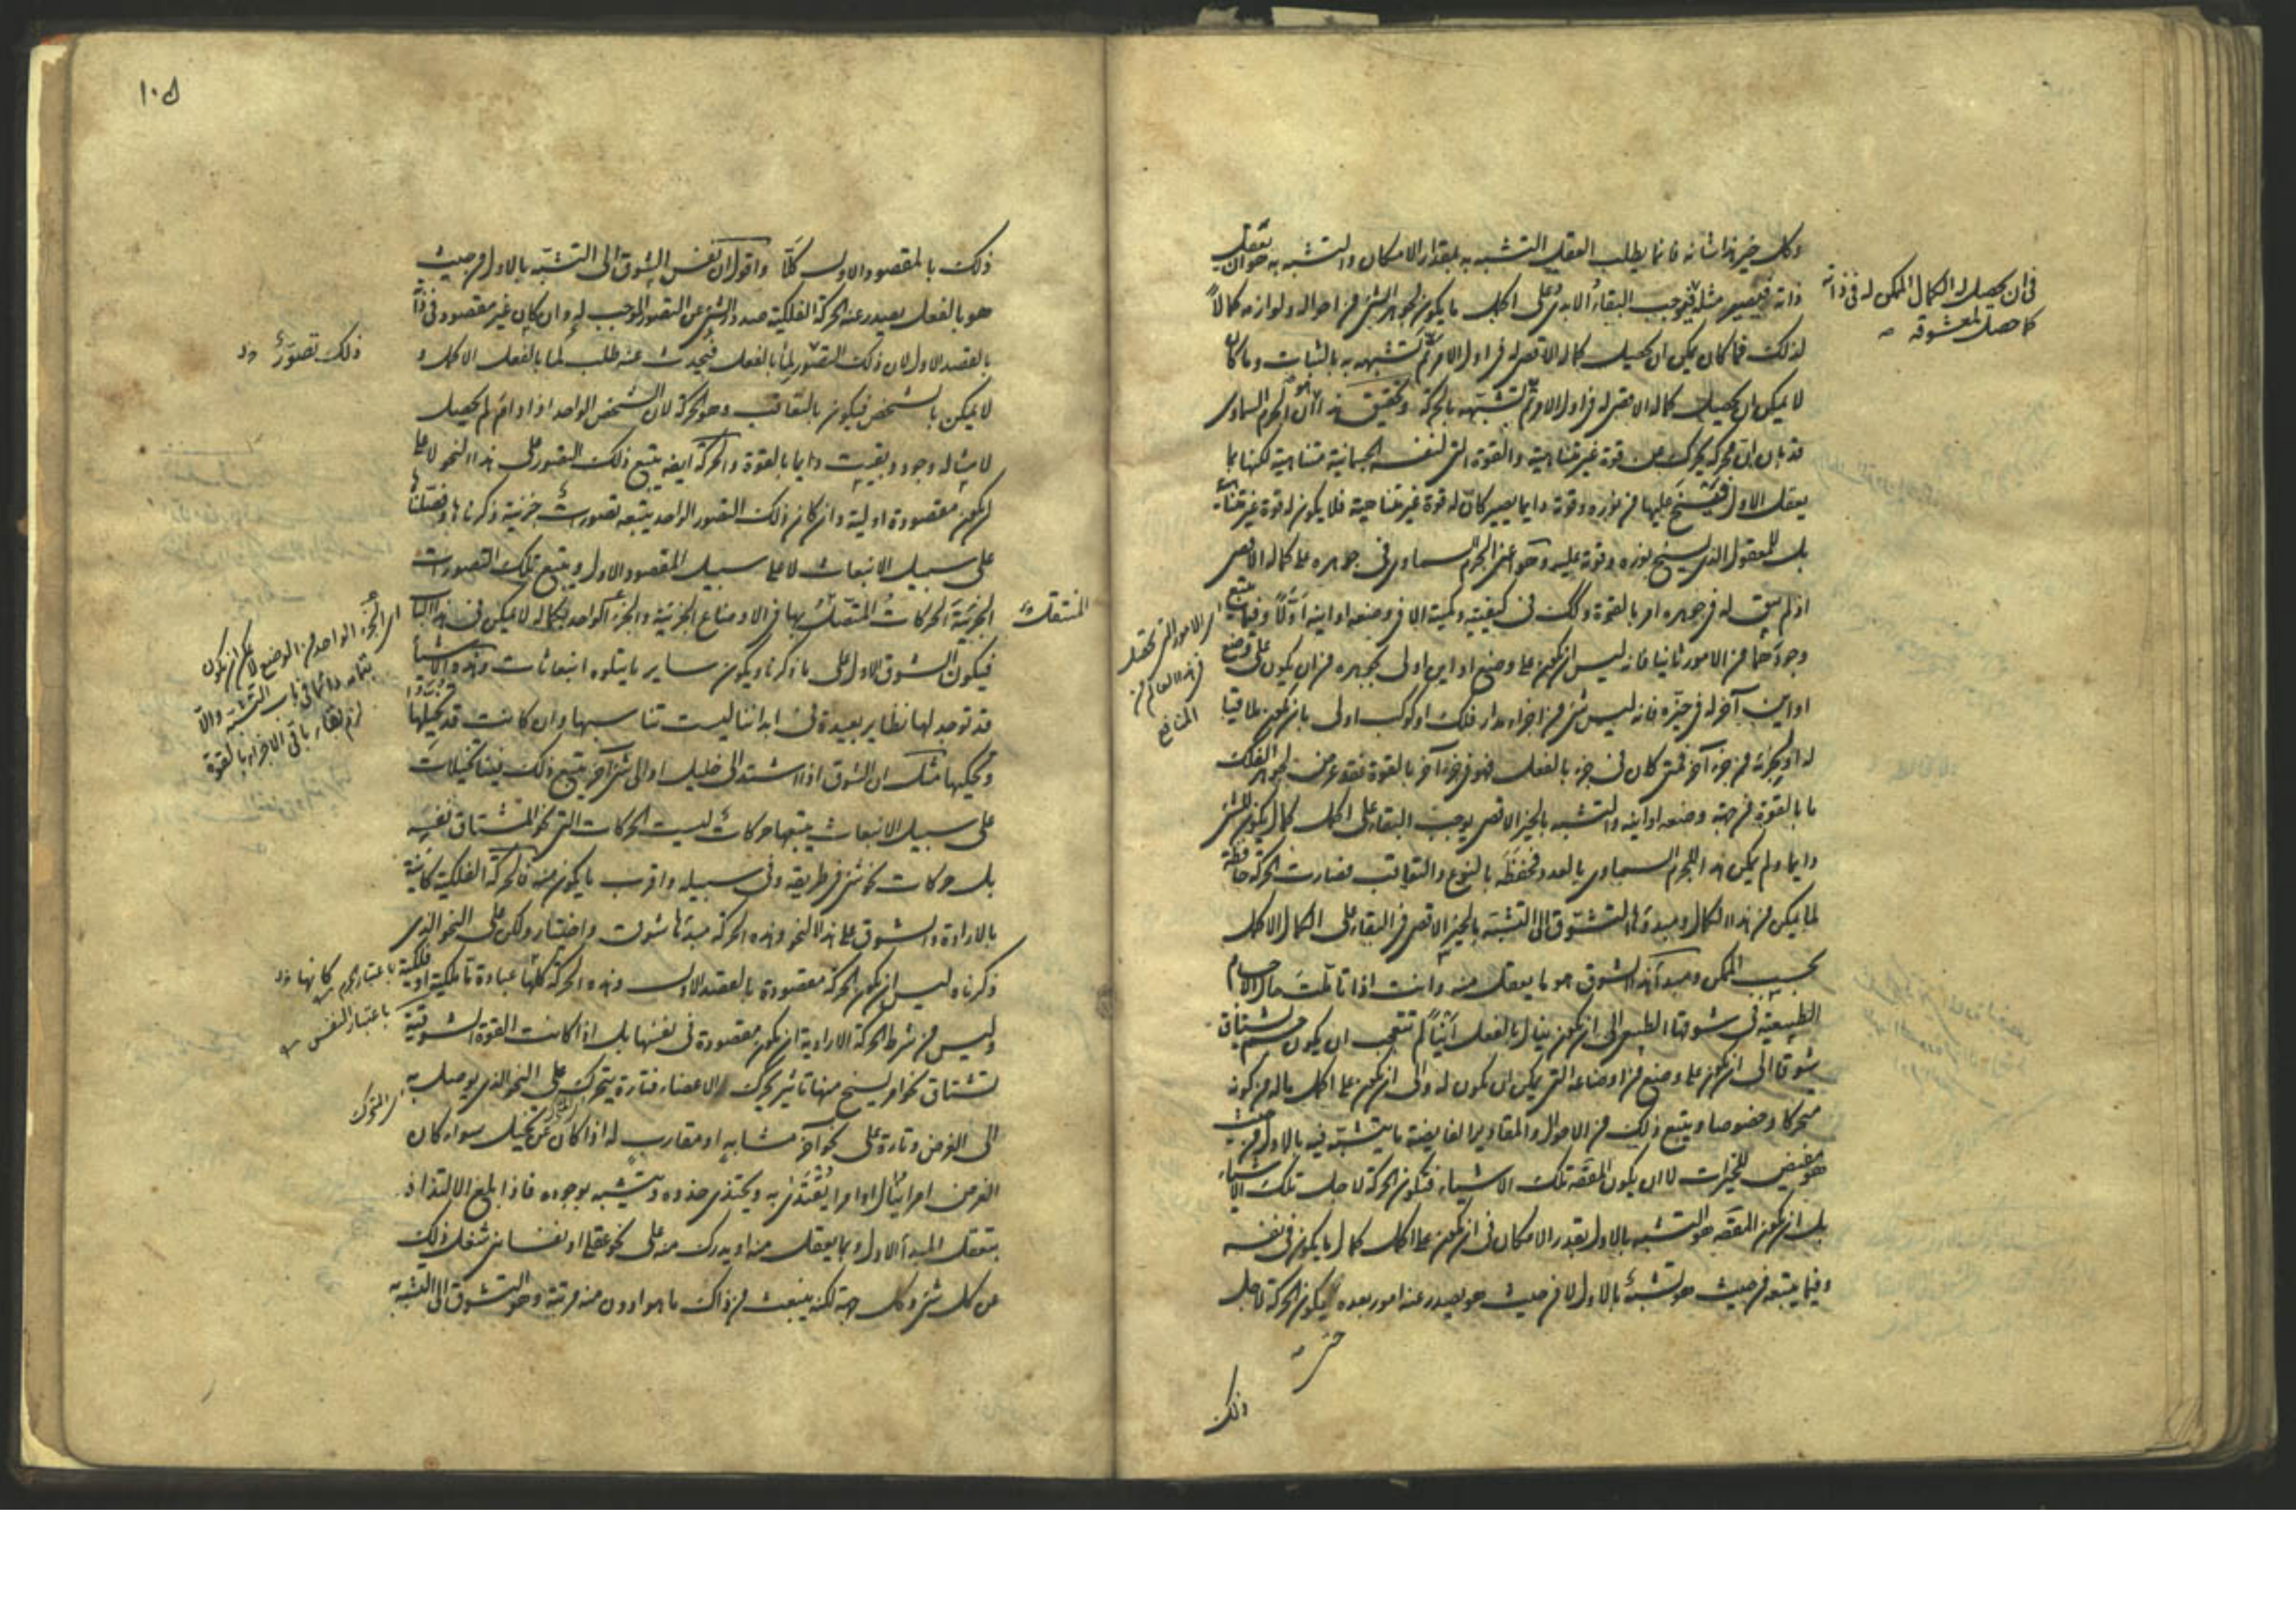 وكل خير هذا شانه فانما يطلب العقل التشبه به بمقدار الامكان والتشبه به هو ان يعقل
ذاته فيصير مثله فيوجب البقاء الابدى على اكمل ما يكون لجوهر الشئ من احواله ولوازمه كمالا
لذلك فما كان يمكن ان يحصل كماله الاقصى له فى اول الامر تم تشبهه به بالثبات وما كان
لا يمكن ان يحصل كماله الاقصى له فى اول الامر تم تشبهه به بالحركة وتحقيق هذا هو ان الجرم السماوى
قد بان ان محركه يحرك عن قوة غير متناهية والقوة التى لنفسه الجسمانية متناهية لكنها بما
يعقل الاول فيسنح عليها من نوره وقوته دايما يصير كان له قوة غير متناهية فلا يكون له قوة غير متناهية
بل للمعقول الذى يسنح نوره وقوته عليه وهو اعنى الجرم السماوى فى جوهره على كماله الاقصى
اذ لم يبق له فى جوهره امر بالقوة وكذلك فى كيفيته وكميته الا فى وضعه او اينه اولا وفيما يتبع
وجودهما من الامور ثانيا فانه ليس ان يكون على وضع او اين اولى بجوهره من ان يكون على وضع
او اين آخر له فى حيزه فانه ليس شئ من اجزاء مدار فلك او كوكب اولى بان يكون ملاقيا
له او لجزئه من جزء آخر فمتى كان فى جزء بالفعل فهو فى جزء آخر بالقوة فقد عرض لجوهر الفلك
ما بالقوة من جهة وضعه او اينه والتشبه بالخير الاقصى يوجب البقاء على اكمل كمال يكون للشئ
دايما ولم يكن هذا للجرم السماوى بالعدد فحفظ بالنوع والتعاقب فصارت الحركة حافظة
لما يمكن من هذا الكمال ومبدؤها التشوق الى التشبه بالخير الاقصى فى البقاء على الكمال الاكمل
بحسب الممكن ومبدأ هذا الشوق هو ما يعقل منه وانت اذا تاملت حال الاجسام
الطبيعية فى شوقها الطبيعى الى ان يكون بالفعل اينا لم تتعجب ان يكون جسم يشتاق
شوقا الى ان يكون على وضع من اوضاعه التى يمكن ان يكون له والى ان يكون على اكمل ماله من كونه
متحركا وخصوصا ويتبع ذلك من الاحوال والمقادير الفايضة ما يتشبه فيه بالاول من حيث
هو مفيض للخيرات لا ان يكون المقصد تلك الاشياء فتكون الحركة لاجل تلك الاشياء
بل ان يكون المقصد هو التشبه بالاول بقدر الامكان فى ان يكون على اكمل كمال ما يكون فى نفسه
وفيما يتبعه من حيث هو تشبه بالاول لا من حيث هو يصدر عنه امور بعده يكون الحركة لاجل
حتى
ذلك
فى ان يحصل له الكمال الممكن له فى ذاته
كما حصل لمعشوقه
اى الامور التى تحصل
فى هذا العالم من
المنافع
١٠٥
ذلك بالمقصود الاول كلا واقول ان نفس الشوق الى التشبه بالاول من حيث
هو بالفعل يصدر عنه الحركة الفلكية صدور الشئ عن التصور الموجب له وان كان غير مقصود فى ذاته
بالقصد الاول لان ذلك التصور لما بالفعل فيحدث عنه طلب لما بالفعل الاكمل و
لا يمكن بالشخص فيكون بالتعاقب وهو الحركة لان الشخص الواحد اذا دام لم يحصل
لامثاله وجود وبقيت دايما بالقوة والحركة ايضا يتبع ذلك التصور على هذا النحو لا على
ان يكون مقصودة اولية وان كان ذلك التصور الواحد يتبعه تصورات جزئية ذكرناها وفصلناها
على سبيل الانبعاث لا على سبيل المقصود الاول ويتبع تلك التصورات
الجزئية الحركات المتنقل بها فى الاوضاع الجزئية والجزء الواحد بكماله لا يمكن فى هذا الباب
فيكون الشوق الاول على ما ذكرنا ويكون ساير ما يتلوه انبعاثات وهذه الاشياء
قد توجد لها نظاير بعيدة فى ابداننا ليست تناسبها وان كانت قد تخيلها
وتحكيها مثل ان الشوق اذا اشتد الى خليل او الى شئ آخر يتبع ذلك فينا تخيلات
على سبيل الانبعاث يتبعها حركات ليست الحركات التى نحو المشتاق نفسه
بل حركات نحو شئ فى طريقه وفى سبيله واقرب ما يكون منه فالحركة الفلكية كاينة
بالارادة والشوق على هذا النحو وهذه الحركة مبدؤها شوق واختيار ولكن على النحو الذى
ذكرناه ليس ان يكون الحركة مقصودة بالقصد الاول وهذه الحركة كانها عبادة ما ملكية او فلكية
وليس من شرط الحركة الارادية ان يكون مقصودة فى نفسها بل اذا كانت القوة الشوقية
تشتاق نحو امر يسنح منها تاثير يحرك الاعضاء فتارة يتحرك على النحو الذى يوصل به
الى الغرض وتارة على نحو آخر مشابه او مقارب له اذا كان عن تخيل سواء كان
الغرض امرا ينال او امرا يقتدى به ويحتذى حذوه ويتشبه بوجوده فاذا بلغ الالتذاذ
بتعقل المبدأ الاول وبما يعقل منه او يدرك منه على نحو عقلى او نفسانى شغل ذلك
عن كل شئ وكل جهة لكنه ينبعث من ذاك ما هو ادون منه مرتبة وهو التشوق الى التشبه به
ذلك تصور
المنتقل
اى الجزء الواحد من الوضع لا يمكن ان يكون
بتمامه دائما فى باب التشبه والا
لزم بقاء باقى الاجزاء بالقوة
باعتبار الجرم كانها
باعتبار النفس
اى المتحرك